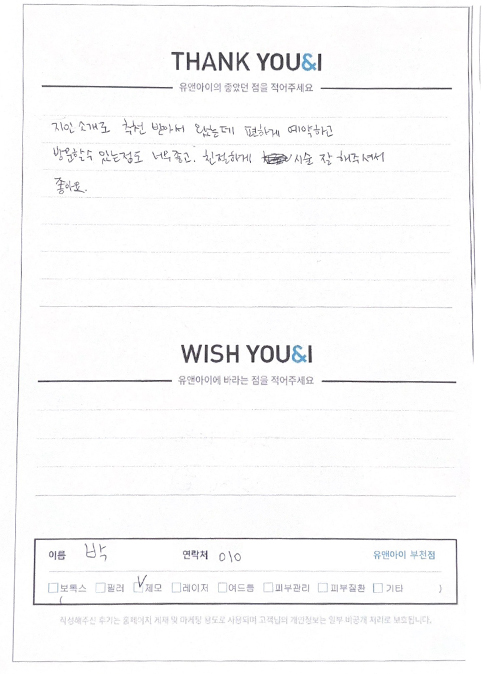 THANK YOU&I
유앤아이의 좋았던 점을 적어주세요
지인 소개로 추천 받아서 왔는데 편하게 예약하고
방문할수 있는점도 너무좋고. 친절하게 시술 잘 해주셔서
좋아요.
WISH YOU&I
유앤아이에 바라는 점을 적어주세요
이름 박 연락처 010 유앤아이 부전점
보톡스 필러 제모 레이저 여드름 피부관리 피부질환 기타 )
(
작성해주신 후기는 홈페이지 게재 및 마케팅 용도로 사용되며 고객님의 개인정보는 일부 비공개 처리로 보호됩니다.